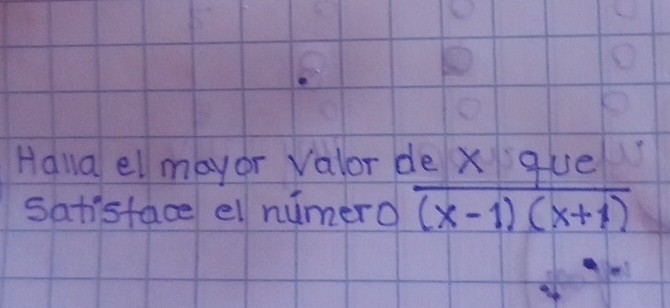 Halla el mayor valor de x que
satisface el número \overline{(x-1)(x+1)}